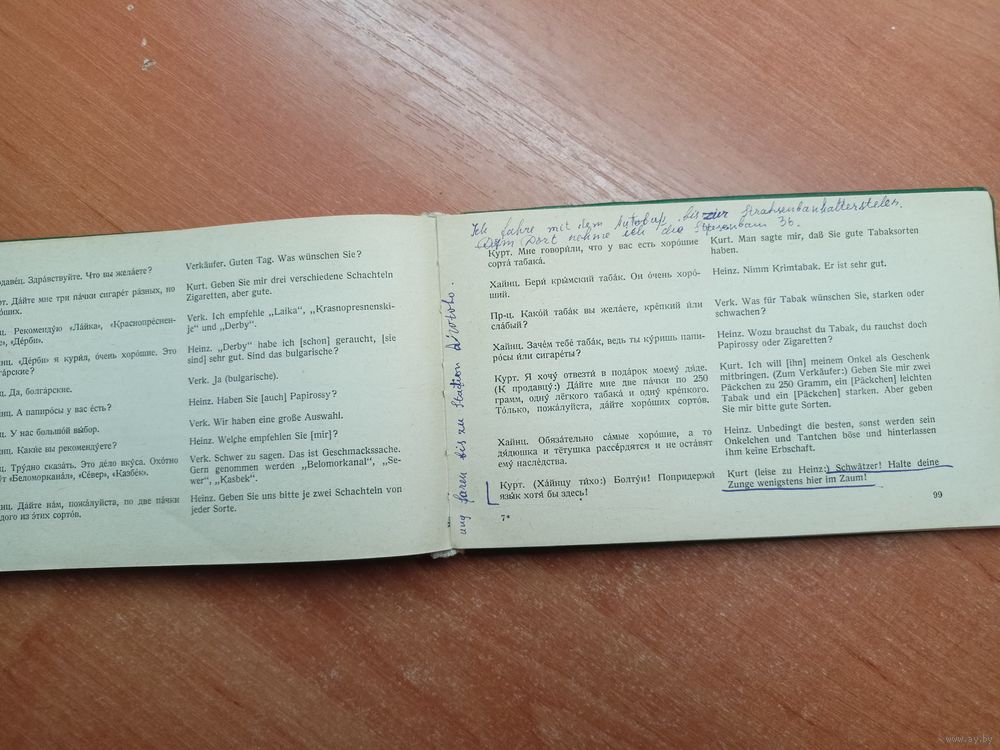 Здра́вствуйте. Что вы жела́ете?
Да́йте мне три па́чки сигаре́т ра́зных, но
Рекоменду́ю «Ла́йка», «Краснопре́снен-
«Де́рби».
«Де́рби» я кури́л, о́чень хоро́шие. Это
Да, болга́рские.
А папиро́сы у вас е́сть?
У нас большо́й вы́бор.
Каки́е вы рекоменду́ете?
Тру́дно сказа́ть. Э́то де́ло вку́са. Охо́тно
«Беломоркана́л», «Се́вер», «Казбе́к».
Да́йте нам, пожа́луйста, по две па́чки
из э́тих сорто́в.
Verkäufer. Guten Tag. Was wünschen Sie?
Kurt. Geben Sie mir drei verschiedene Schachteln
Zigaretten, aber gute.
Verk. Ich empfehle „Laika“, „Krasnopresnenski-
je“ und „Derby“.
Heinz. „Derby“ habe ich [schon] geraucht, [sie
sind] sehr gut. Sind das bulgarische?
Verk. Ja (bulgarische).
Heinz. Haben Sie [auch] Papirossy?
Verk. Wir haben eine große Auswahl.
Heinz. Welche empfehlen Sie [mir]?
Verk. Schwer zu sagen. Das ist Geschmackssache.
Gern genommen werden „Belomorkanal“, „Se-
wer“, „Kasbek“.
Heinz. Geben Sie uns bitte je zwei Schachteln von
jeder Sorte.
ung faren bis zu Station
Ich fahre mit dem Autobuß bis zur
Dort nehme ich die 36.
Курт. Мне говори́ли, что у вас есть хоро́шие
сорта́ табака́.
Хайнц. Бери́ кры́мский таба́к. Он о́чень хоро́-
ший.
Пр-ц. Како́й таба́к вы жела́ете, кре́пкий и́ли
сла́бый?
Хайнц. Заче́м тебе́ таба́к, ведь ты ку́ришь папи-
ро́сы и́ли сигаре́ты?
Курт. Я хочу́ отвезти́ в пода́рок моему́ дя́де.
(К продавцу́:) Да́йте мне две па́чки по 250
грамм, одну́ лёгкого табака́ и одну́ кре́пкого.
То́лько, пожа́луйста, да́йте хоро́ших сорто́в.
Хайнц. Обяза́тельно са́мые хоро́шие, а то
дя́дюшка и тётушка рассе́рдятся и не оста́вят
ему́ насле́дства.
Курт. (Ха́йнцу ти́хо:) Болту́н! Попридержи́
язы́к хотя́ бы здесь!
7*
Kurt. Man sagte mir, daß Sie gute Tabaksorten
haben.
Heinz. Nimm Krimtabak. Er ist sehr gut.
Verk. Was für Tabak wünschen Sie, starken oder
schwachen?
Heinz. Wozu brauchst du Tabak, du rauchst doch
Papirossy oder Zigaretten?
Kurt. Ich will [ihn] meinem Onkel als Geschenk
mitbringen. (Zum Verkäufer:) Geben Sie mir zwei
Päckchen zu 250 Gramm, ein [Päckchen] leichten
Tabak und ein [Päckchen] starken. Aber geben
Sie mir bitte gute Sorten.
Heinz. Unbedingt die besten, sonst werden sein
Onkelchen und Tantchen böse und hinterlassen
ihm keine Erbschaft.
Kurt (leise zu Heinz:) Schwätzer! Halte deine
Zunge wenigstens hier im Zaum!
99
www.ay.by